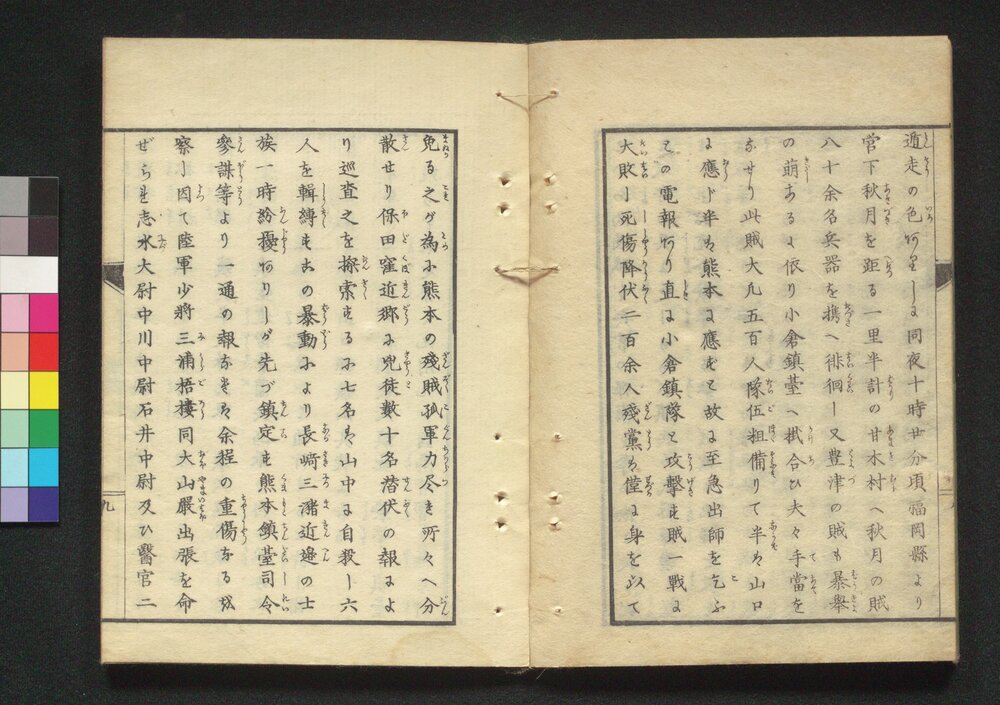 遁走の色ありしに同夜十時廿分頃福岡縣より
管下秋月を距る一里半計の甘木村へ秋月の賊
八十余名兵器を携へ徘徊し又豊津の賊も暴擧
の萌あるに依り小倉鎮䑓へ掛合ひ夫々手當を
なせり此賊大凢五百人隊伍粗備りて半は山口
に應じ半は熊本に應ずと故に至急出師を乞ふ
との電報あり直に小倉鎮隊と攻擊す賊一戰に
大敗し死傷降伏二百余人殘黨は僅に身を以て
免る之が為に熊本の殘賊孤軍力尽き所々へ分
散せり保田窪近郷に兇徒數十名潜伏の報によ
り巡査之を探索するに七名は山中に自殺し六
人を輯縛す古の暴動により長崎三潴近邉の士
族一時紛擾ありしが先づ鎮定す熊本鎮䑓司令
參謀等より一通の報なきは余程の重傷なる故
察し因て陸軍少將三浦梧樓同大山嚴出張を命
ぜられ志水大尉中川中尉石井中尉及ひ醫官二
九